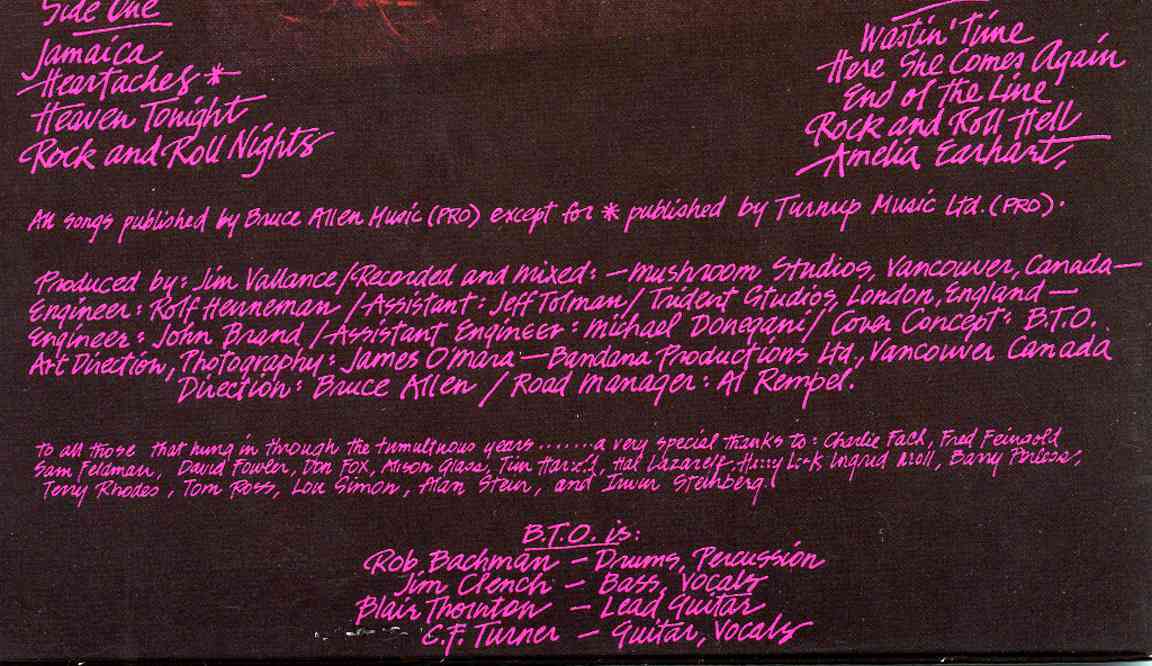 Side One
Jamaica
Heartaches *
Heaven Tonight
Rock and Roll Nights
Wastin' Time
Here She Comes Again
End of the Line
Rock and Roll Hell
Amelia Earhart,
All songs published by Bruce Allen Music (PRO) except for * published by Turnup Music Ltd. (PRO).
Produced by: Jim Vallance / Recorded and mixed: — Mushroom Studios, Vancouver, Canada —
Engineer: Rolf Henneman / Assistant: Jeff Tolman / Trident Studios, London, England —
Engineer: John Brand / Assistant Engineer: Michael Donegani / Cover Concept: B.T.O.
Art Direction, Photography: James O'Mara — Bandana Productions Ltd., Vancouver Canada
Direction: Bruce Allen / Road Manager: Al Rempel.
To all those that hung in through the tumultuous years ....... a very special thanks to: Charlie Fach, Fred Feingold
Sam Feldman, David Fowler, Don Fox, Alison Glass, Tim Hal Lazareff, Ingrid Barry
Terry Rhodes, Tom Ross, Lou Simon, Alan Stein, and Irwin Steinberg.
B.T.O. is:
Rob Bachman — Drums, Percussion
Jim Clench — Bass, Vocals
Blair Thornton — Lead Guitar
C.F. Turner — Guitar, Vocals